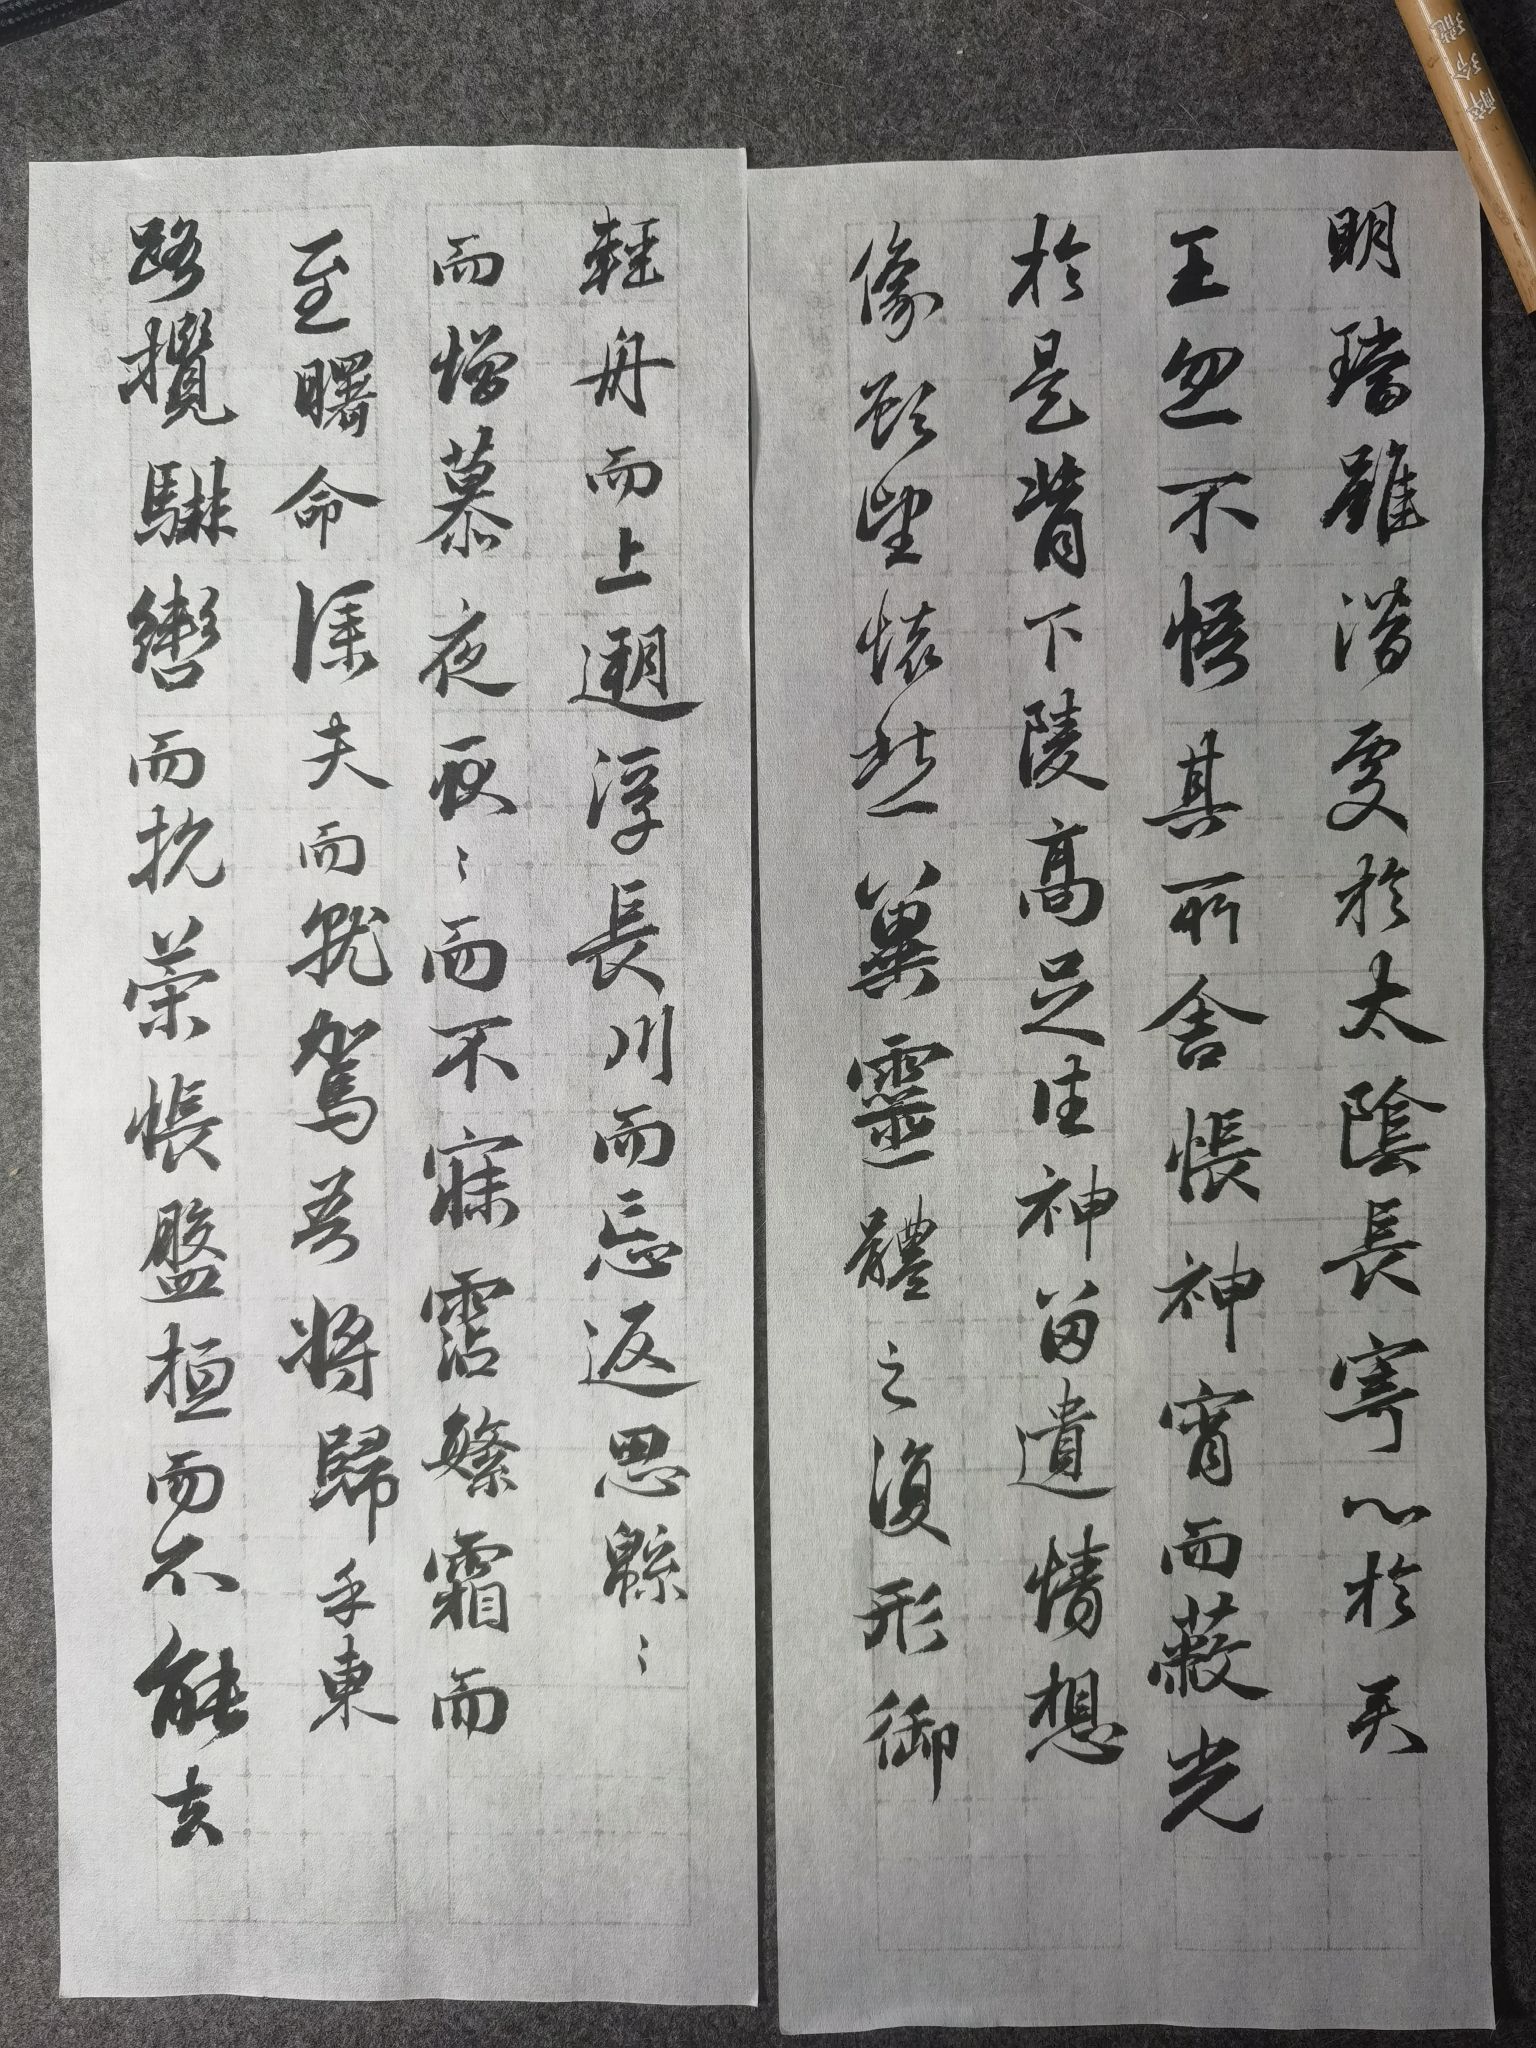 明璫雖潛處於太陰長寄心於君
王忽不悟其所舍悵神宵而蔽光
於是背下陵高足往神留遺情想
像顧望懷愁冀靈體之復形御
輕舟而上遡浮長川而忘返思緜〻
而增慕夜耿〻而不寐霑繁霜而
至曙命僕夫而就駕吾將歸乎東
路攬騑轡而抗策悵盤桓而不能去